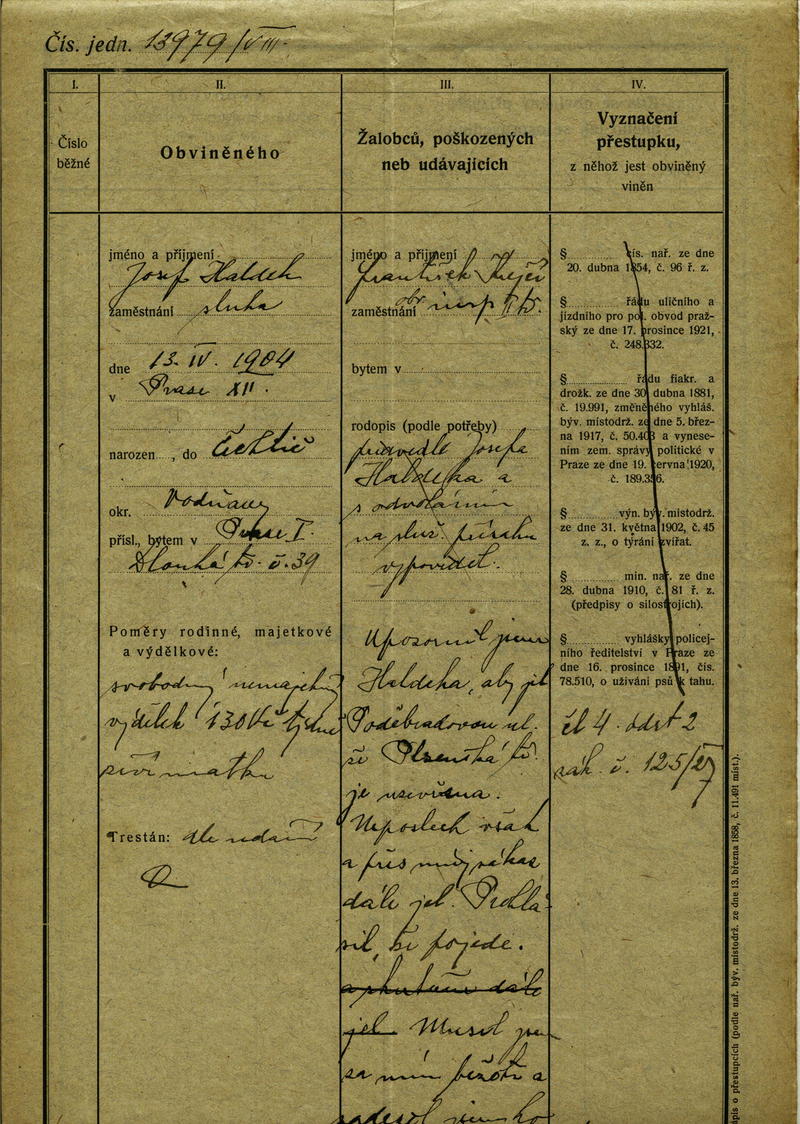 Čís. jedn. 13979/VIII.
I.
Číslo
běžné
II.
Obviněného
III.
Žalobců, poškozených
neb udávajících
IV.
Vyznačení
přestupku,
z něhož jest obviněný
viněn
jméno a příjmení
Josef Haldek
zaměstnání sluha
dne 13. IV. 1904
v Praze XII.
narozen , do
okr. Vodňany
přísl., bytem v Praze I.
Dlouhá tř. č. 39
Poměry rodinné, majetkové
a výdělkové:
svobodný nemajetný
výdělek 130 Kč týdně
živí matku
Trestán: dle udání
jméno a příjmení
František
zaměstnání
bytem v
rodopis (podle potřeby)
předvedl Josefa
Haldeka a
s odvoláním
na služ. přísahu
vypověděl.
Upozornil jsem
Haldeka, aby jel
Poděbradovou ul.
že Plzeňská tř.
je uzavřena.
Neposlechl však
a přes můj zákaz
dále jel. Prohlá-
sil, že pojede.
a skutečně dále
jel. Musel jsem
za ním běžeti a
§ čís. nař. ze dne
20. dubna 1854, č. 96 ř. z.
§ řádu uličního a
jízdního pro pol. obvod praž-
ský ze dne 17. prosince 1921,
č. 248.332.
§ řádu fiakr. a
drožk. ze dne 30. dubna 1881,
č. 19.991, změněného vyhláš.
býv. místodrž. ze dne 5. břez-
na 1917, č. 50.403 a vynese-
ním zem. správy politické v
Praze ze dne 19. června 1920,
č. 189.356.
§ výn. býv. místodrž.
ze dne 31. května 1902, č. 45
z. z., o týrání zvířat.
§ min. nař. ze dne
28. dubna 1910, č. 81 ř. z.
(předpisy o silostrojích).
§ vyhlášky policej-
ního ředitelství v Praze ze
dne 16. prosince 1891, čís.
78.510, o užívání psů k tahu.
čl 4. odst 2
zák. č. 125/27
o přestupcích (podle nař. býv. místodrž. ze dne 13. března 1858, č. 11.491 míst.).